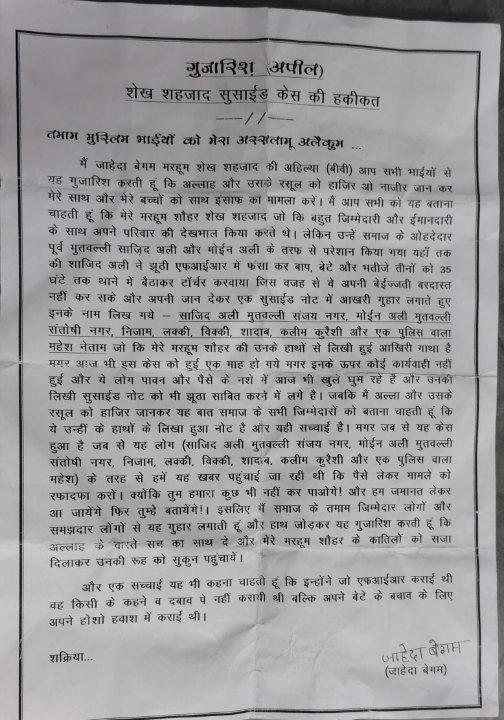 गुजारिश (अपील)
शेख शहजाद सुसाईड केस की हकीकत
---//---
तमाम मुस्लिम भाईयों को मेरा अस्सलामू अलैकुम ...
मैं जाहेदा बेगम मरहूम शेख शहजाद की अहिल्या (बीवी) आप सभी भाईयों से
यह गुजारिश करती हूं कि अल्लाह और उसके रसूल को हाजिर ओ नाजीर जान कर
मेरे साथ और मेरे बच्चों को साथ इंसाफ का मामला करें। मैं आप सभी को यह बताना
चाहती हूं कि मेरे मरहूम शौहर शेख शहजाद जो कि बहुत जिम्मेदारी और ईमानदारी
के साथ अपने परिवार की देखभाल किया करते थे। लेकिन उन्हें समाज के ओहदेदार
पूर्व मुतवल्ली साजिद अली और मोईन अली के तरफ से परेशान किया गया यहाँ तक
की शाजिद अली ने झूठी एफआईआर में फंसा कर बाप, बेटे और भतीजे तीनों को 35
घंटे तक थाने में बैठाकर टॉर्चर करवाया जिस वजह से वे अपनी बेईज्जती बरदास्त
नहीं कर सके और अपनी जान देकर एक सुसाईड नोट में आखरी गुहार लगाते हुए
इनके नाम लिख गये – साजिद अली मुतवल्ली संजय नगर, मोईन अली मुतवल्ली
संतोषी नगर, निजाम, लक्की, विक्की, शादाब, कलीम कुरैशी और एक पुलिस वाला
महेश नेताम जो कि मेरे मरहूम शौहर की उनके हाथों से लिखी हुई आखिरी गाथा है
मगर आज भी इस केस को हुई एक माह हो गये मगर इनके ऊपर कोई कार्यवाही नहीं
हुई और ये लोग पावन और पैसे के नशे में आज भी खुले घुम रहे हैं और उनकी
लिखी सुसाईड नोट को भी झूठा साबित करने में लगे है। जबकि मैं अल्ला और उसके
रसूल को हाजिर जानकर यह बात समाज के सभी जिम्मेदारों को बताना चाहती हूं कि
ये उन्हीं के हाथों के लिखा हुआ नोट है और यही सच्चाई है। मगर जब से यह केस
हुआ है जब से यह लोग (साजिद अली मुतवल्ली संजय नगर, मोईन अली मुतवल्ली
संतोषी नगर, निजाम, लक्की, विक्की, शादाब, कलीम कुरैशी और एक पुलिस वाला
महेश) के तरह से हमें यह खबर पहुंचाई जा रही थी कि पैसे लेकर मामले को
रफादफा करों। क्योंकि तुम हमारा कुछ भी नहीं कर पाओगे! और हम जमानत लेकर
आ जायेंगे फिर तुम्हे बतायेंगे!। इसलिए मैं समाज के तमाम जिम्मेदार लोगों और
समझदार लोगों से यह गुहार लगाती हूँ और हाथ जोड़कर यह गुजारिश करती हूं कि
अल्लाह के वास्ते सच का साथ दे और मेरे मरहूम शौहर के कातिलों को सजा
दिलाकर उनकी रूह को सुकुन पहुंचायें।
और एक सच्चाई यह भी कहना चाहती हूं कि इन्होंने जो एफआईआर कराई थी
वह किसी के कहने व दबाव पे नहीं करायी थी बल्कि अपने बेटे के बचाव के लिए
अपने होशो हवाश में कराई थी।
शक्रिया...
जाहेदा बेगम
(जाहेदा बेगम)